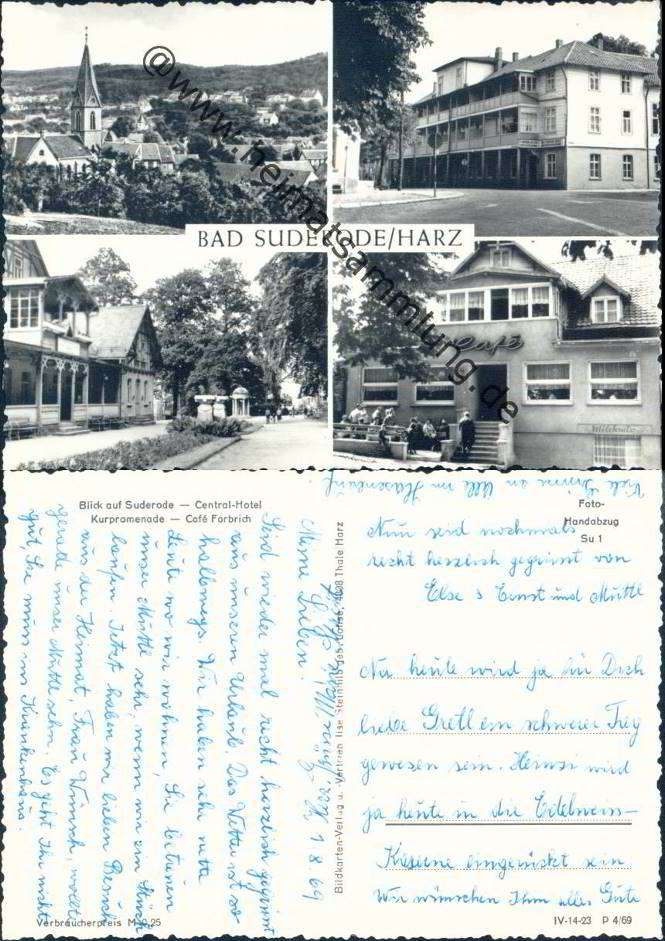 @www.heimatsammlung.de
BAD SUDERODE/HARZ
Café
Milchbar
Blick auf Suderode — Central-Hotel
Kurpromenade — Café Forbrich
Foto-
Handabzug
Su 1
Viele Grüße an Ulli im
1.8.69
Meine Lieben.
Seid wieder mal recht herzlich gegrüsst
aus unseren Urlaub. Das Wetter ist so
halbwegs. Wir haben sehr nette
Leute wo wir wohnen, Sie betreuen
unser Muttle sehr, wenn wir ein Stück
laufen. Jetzt haben wir lieben Besuch
aus der Heimat, Frau Wünsch, wollt
gerade unser Muttl sehn. Es geht Ihr nicht
gut, Sie muss ins Krankenhaus.
Bildkarten-Verlag u. -Vertrieb Ilse Steinbiß geb. 4308 Thale/Harz
Nun seid nochmals
recht herzlich gegrüsst von
Else & Ernst und Muttl
Na heute wird ja für Dich
liebe Gretl ein schwerer Tag
gewesen sein. Heinzi wird
ja heute in die Edelweis-
Kaserne eingerückt sein
Wir wünschen Ihm alles Gute
Verbraucherpreis M 0,25
IV-14-23 P 4/69